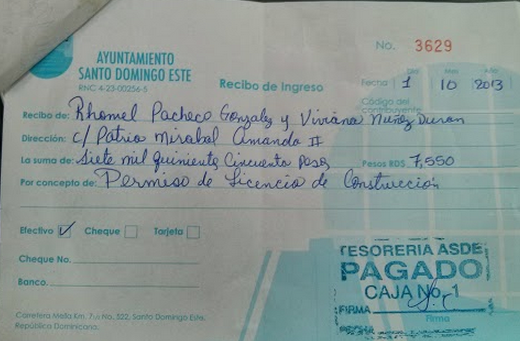 No. 3629
AYUNTAMIENTO
SANTO DOMINGO ESTE
RNC 4-23-00256-5
Recibo de Ingreso
Día Mes Año
Fecha 1 10 2013
Código del contribuyente
Recibo de: Rhomel Pacheco Gonzalez y Viviana Nuñez Duran
Dirección: C/ Patria Mirabal Amanda II
La suma de: Siete mil quinientos Cincuenta Pesos Pesos RD$ 7,550
Por concepto de: Permiso de Licencia de Construcción
Efectivo Cheque Tarjeta
Cheque No.
Banco.
TESORERIA ASDE
PAGADO
CAJA No. 1
FIRMA
Firma
Carretera Mella Km. 7½ No. 522, Santo Domingo Este.
República Dominicana.